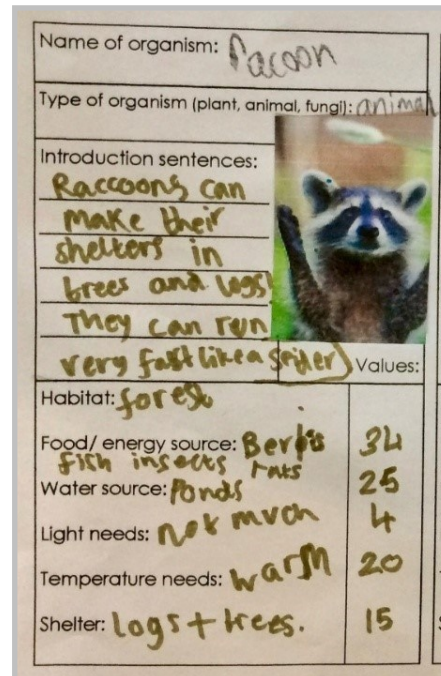 Name of organism: Racoon
Type of organism (plant, animal, fungi): animal
Introduction sentences:
Raccoons can
make their
shelters in
trees and logs!
They can run
very fast like a spider
Values:
Habitat: forest
Food/ energy source: Berris 34
fish insects rats
Water source: Ponds 25
Light needs: not much 4
Temperature needs: warm 20
Shelter: logs + trees. 15